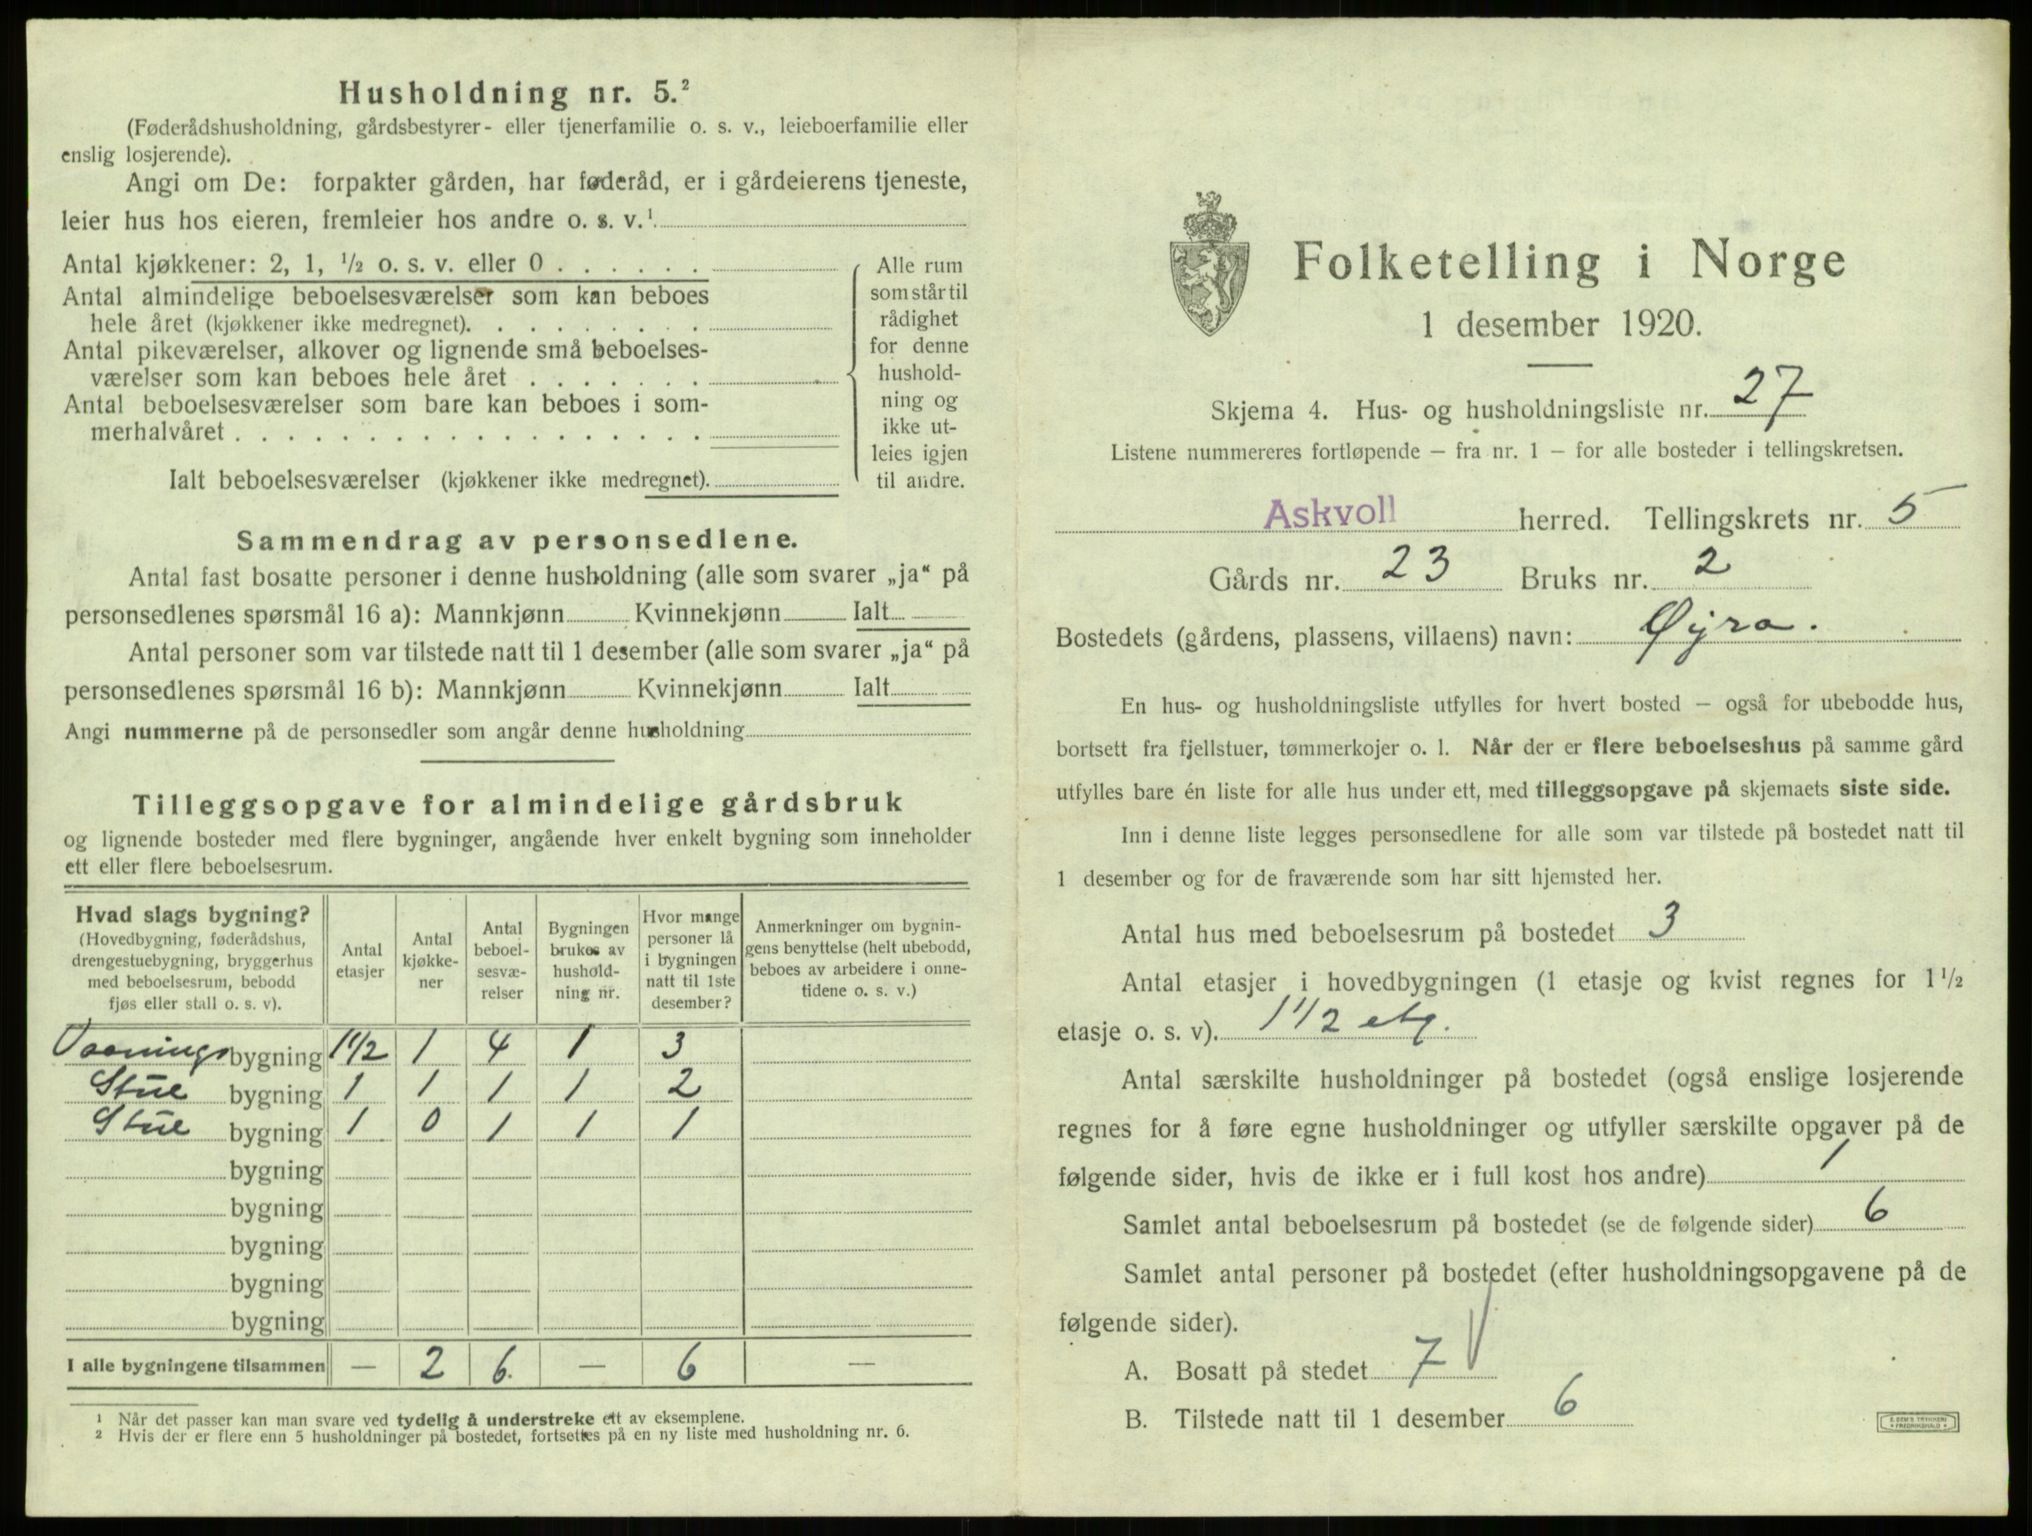 Husholdning nr. 5.²
(Føderådshusholdning, gårdsbestyrer- eller tjenerfamilie o. s. v., leieboerfamilie eller
enslig losjerende).
Angi om De: forpakter gården, har føderåd, er i gårdeierens tjeneste,
leier hus hos eieren, fremleier hos andre o. s. v.¹
Antal kjøkkener: 2, 1, ½ o. s. v. eller 0 . . . . . .
Antal almindelige beboelsesværelser som kan beboes
hele året (kjøkkener ikke medregnet). . . . . . . . .
Antal pikeværelser, alkover og lignende små beboelses-
værelser som kan beboes hele året . . . . . . .
Antal beboelsesværelser som bare kan beboes i som-
merhalvåret . . . . . . . . . . . . . . . . . .
Ialt beboelsesværelser (kjøkkener ikke medregnet).
Alle rum
som står til
rådighet
for denne
hushold-
ning og
ikke ut-
leies igjen
til andre.
Sammendrag av personsedlene.
Antal fast bosatte personer i denne husholdning (alle som svarer „ja“ på
personsedlenes spørsmål 16 a): Mannkjønn Kvinnekjønn Ialt
Antal personer som var tilstede natt til 1 desember (alle som svarer „ja“ på
personsedlenes spørsmål 16 b): Mannkjønn Kvinnekjønn Ialt
Angi nummerne på de personsedler som angår denne husholdning
Tilleggsopgave for almindelige gårdsbruk
og lignende bosteder med flere bygninger, angående hver enkelt bygning som inneholder
ett eller flere beboelsesrum.
Hvad slags bygning?
(Hovedbygning, føderådshus,
drengestuebygning, bryggerhus
med beboelsesrum, bebodd
fjøs eller stall o. s. v).
Antal
etasjer
Antal
kjøkke-
ner
Antal
beboel-
sesvæ-
relser
Bygningen
brukes av
hushold-
ning nr.
Hvor mange
personer lå
i bygningen
natt til 1ste
desember?
Anmerkninger om bygnin-
gens benyttelse (helt ubebodd,
beboes av arbeidere i onne-
tidene o. s. v.)
Vaanings bygning 1½ 1 4 1 3
Stue bygning 1 1 1 1 2
Stue bygning 1 0 1 1 1
bygning
bygning
bygning
bygning
bygning
I alle bygningene tilsammen — 2 6. — 6 —
¹ Når det passer kan man svare ved tydelig å understreke ett av eksemplene.
² Hvis der er flere enn 5 husholdninger på bostedet, fortsettes på en ny liste med husholdning nr. 6.
Folketelling i Norge
1 desember 1920.
Skjema 4. Hus- og husholdningsliste nr. 27
Listene nummereres fortløpende — fra nr. 1 — for alle bosteder i tellingskretsen.
Askvoll herred. Tellingskrets nr. 5
Gårds nr. 23 Bruks nr. 2
Bostedets (gårdens, plassens, villaens) navn: Øyra.
En hus- og husholdningsliste utfylles for hvert bosted — også for ubebodde hus,
bortsett fra fjellstuer, tømmerkojer o. l. Når der er flere beboelseshus på samme gård
utfylles bare én liste for alle hus under ett, med tilleggsopgave på skjemaets siste side.
Inn i denne liste legges personsedlene for alle som var tilstede på bostedet natt til
1 desember og for de fraværende som har sitt hjemsted her.
Antal hus med beboelsesrum på bostedet 3
Antal etasjer i hovedbygningen (1 etasje og kvist regnes for 1½
etasje o. s. v). 1½ etg.
Antal særskilte husholdninger på bostedet (også enslige losjerende
regnes for å føre egne husholdninger og utfyller særskilte opgaver på de
følgende sider, hvis de ikke er i full kost hos andre) 1
Samlet antal beboelsesrum på bostedet (se de følgende sider) 6
Samlet antal personer på bostedet (efter husholdningsopgavene på de
følgende sider).
A. Bosatt på stedet 7
B. Tilstede natt til 1 desember 6